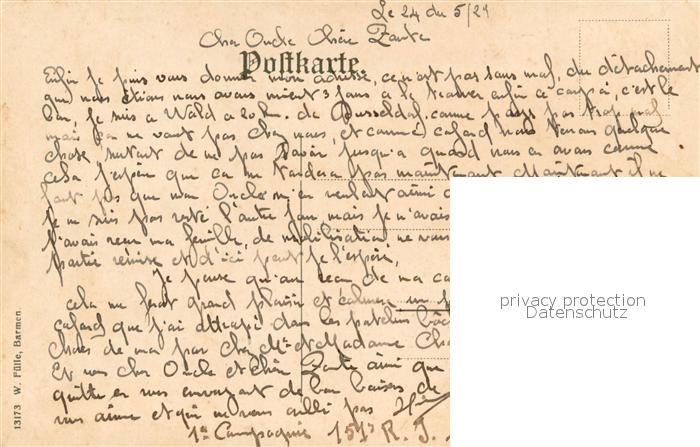 Le 24 du 5/21
Cher Oncle Chère Tante
Postkarte.
Enfin je puis vous donner mon adresse, ce n'est pas sans mal, du détachement
que nous étions nous avons mient 3 jours a le trouver enfin a capai, c'est le
bon, je suis a Wald a 20 km. de Dusseldof. comme pays pas trop mal
mais ça ne vaut pas chez nous, et comme cafard nous tenons quelque
chose, surtout de ne pas savoir jusqu'a quand nous en avons comme
cela j'espère que ça ne tardera pas maintenant. Maintenant il ne
faut pas que mon Oncle m'en veulent ainsi
je ne suis pas resté l'autre jour mais je n'avais
j'avais reçu ma feuille, de mobilisation ne vous
partie remise et d'ici peut je l'espère,
Je pense qu'on reçu de ma
cela me ferait grand plaisir et calmera un
cafard que j'ai attrapé dans les patelins
choses de ma par chez Mr et Madame
Et vous cher Oncle et chère Tante ainsi que
quitte en vous envoyant de bon baisers de
vous aime et qui ne vous oubli pas
1e Campagnie 151e R. I.
13173 W. Fülle, Barmen.
privacy protection
Datenschutz